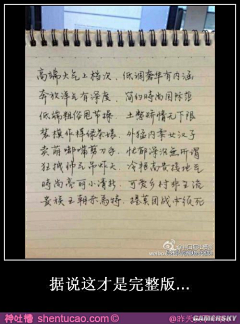 高端大气上档次，低调奢华有内涵
奔放洋气有深度，简约时尚国际范
低端粗俗甩节操，土鳖矫情无下限
装模作样绿茶婊，外猛内柔女汉子
卖萌嘟嘴剪刀手，忧郁深沉无所谓
狂拽帅气吊炸天，冷艳高贵接地气
时尚亮丽小清新，可爱乡村非主流
贵族王朝乔马特，
据说这才是完整版...
神吐槽 shentucao.com
GAMERSKY